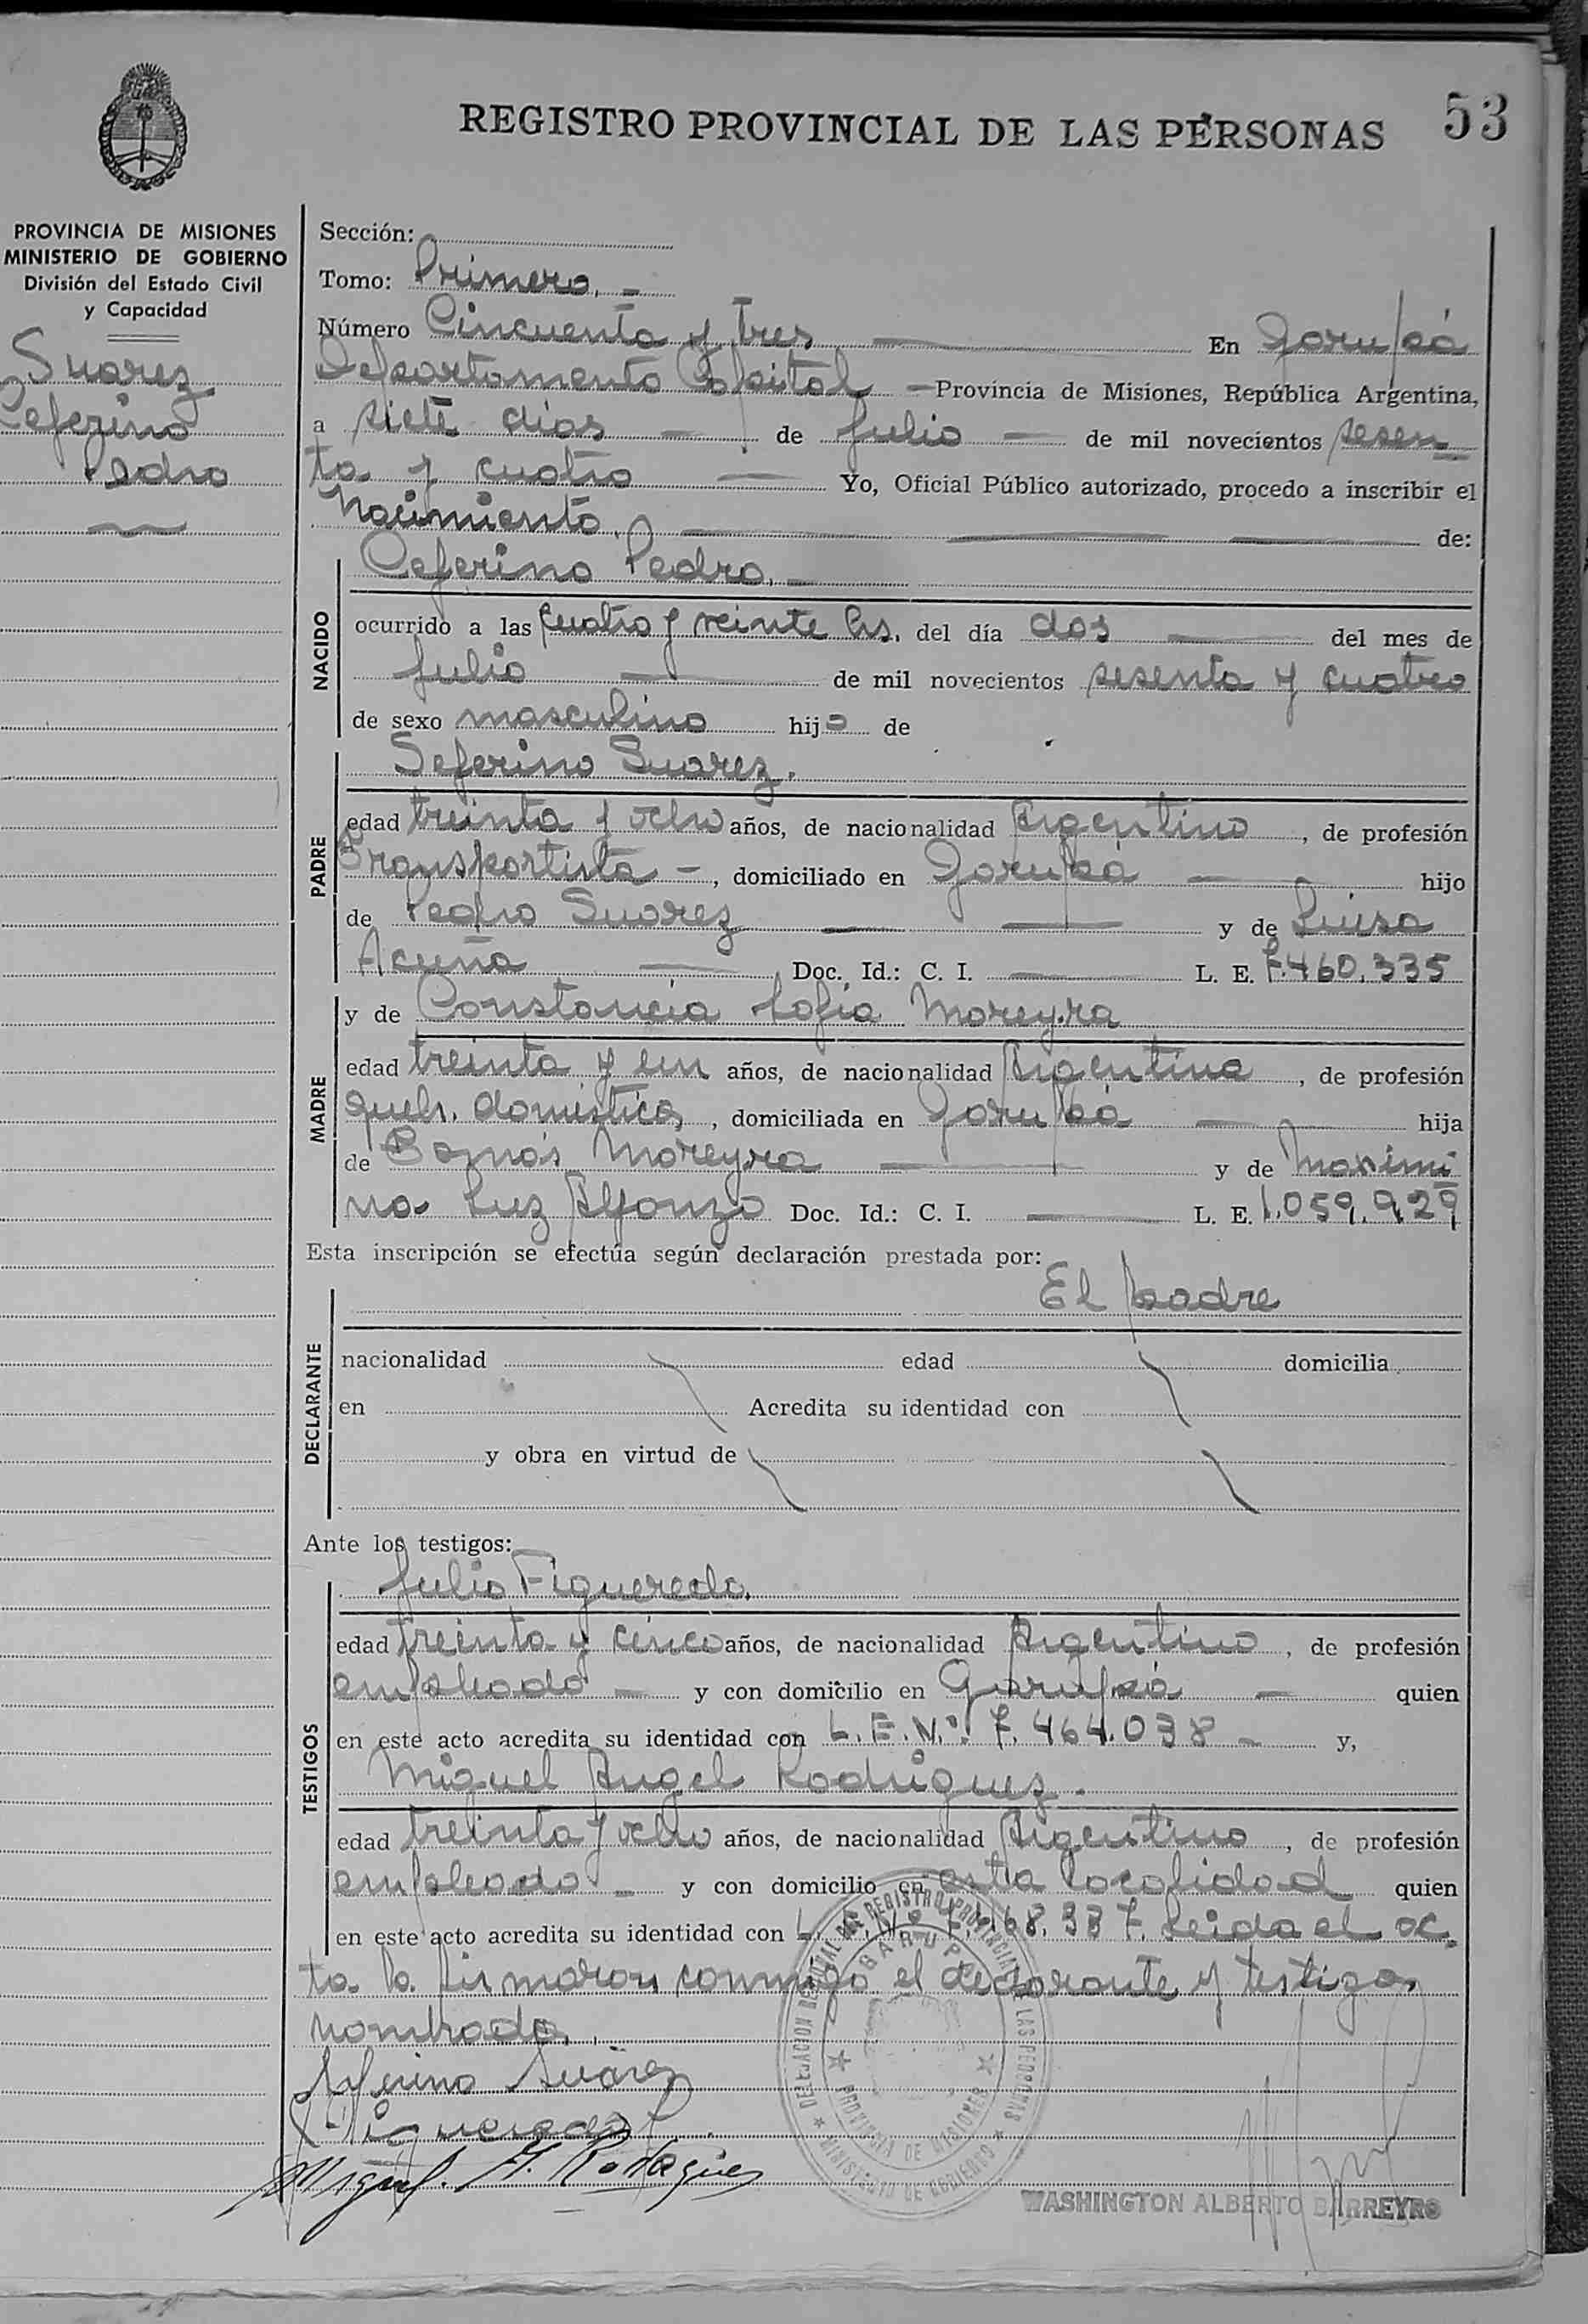 REGISTRO PROVINCIAL DE LAS PERSONAS 53
PROVINCIA DE MISIONES
MINISTERIO DE GOBIERNO
División del Estado Civil
y Capacidad
Suarez
Ceferino
Pedro
Sección:
Tomo: Primero. -
Número Cincuenta y tres En Garupá
Departamento Capital - Provincia de Misiones, República Argentina,
a siete dias de Julio de mil novecientos sesen
ta y cuatro Yo, Oficial Público autorizado, procedo a inscribir el
Nacimiento, de:
NACIDO
Ceferino Pedro. -
ocurrido a las cuatro y veinte hs. del día dos del mes de
Julio de mil novecientos sesenta y cuatro
de sexo masculino hijo de
PADRE
Seferino Suarez.
edad treinta y ocho años, de nacionalidad Argentino, de profesión
Transportista -, domiciliado en Garupá hijo
de Pedro Suarez y de Luisa
Acuña Doc. Id.: C. I. L. E. 7.460.335
MADRE
y de Constancia Sofia Moreyra
edad treinta y un años, de nacionalidad Argentina, de profesión
queh. domestica, domiciliada en Garupá hija
de Moreyra y de Maximi
na Luz Alfonzo Doc. Id.: C. I. L. E. 1.059.929
Esta inscripción se efectúa según declaración prestada por:
DECLARANTE
El padre
nacionalidad edad domicilia
en Acredita su identidad con
y obra en virtud de
Ante los testigos:
TESTIGOS
Julio Figueredo.
edad treinta y cinco años, de nacionalidad Argentino, de profesión
empleado - y con domicilio en Garupá - quien
en este acto acredita su identidad con L.E.N.º 7.464.038 - y,
Miguel Angel Rodriguez.
edad treinta y ocho años, de nacionalidad Argentino, de profesión
empleado - y con domicilio en esta localidad quien
en este acto acredita su identidad con Leida el ac
ta la firmaron conmigo el declarante y testigos
nombrados.
Seferino Suárez
Figueredo
Miguel. A. Rodriguez
DELEGACION DEL REGISTRO PROVINCIAL DE LAS PERSONAS
GARUPA
PROVINCIA DE MISIONES
MINISTERIO DE GOBIERNO
WASHINGTON ALBERTO BARREYRO